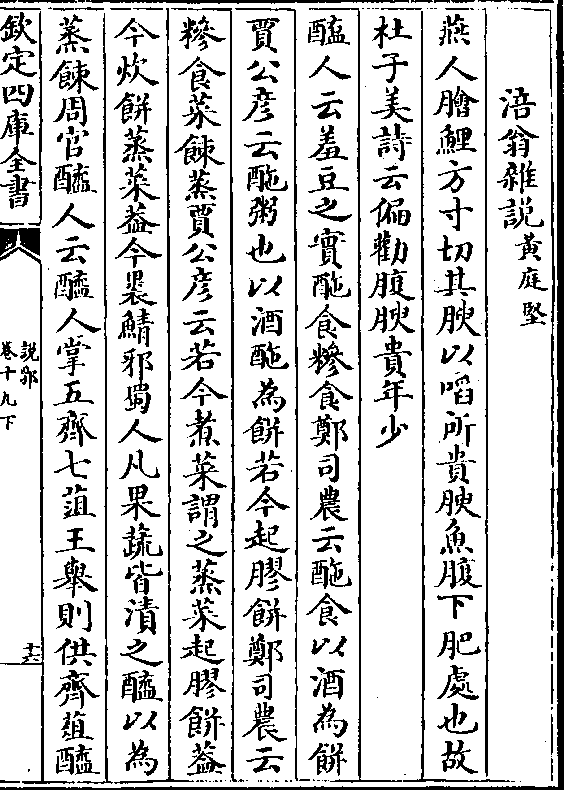 涪翁雜説黄庭堅
燕人膾鯉方寸切其腴以啗所貴腴魚腹下肥處也故
杜子美詩云偏勸腹腴貴年少
醢人云羞豆之實酏食糝食鄭司農云酏食以酒為餅
賈公彦云酏粥也以酒酏為餅若今起膠餅鄭司農云
糝食菜餗蒸賈公彦云若今煮菜謂之蒸菜起膠餅葢
今炊餅蒸菜葢今褁鯖邪蜀人凡果蔬皆漬之醯以為
蒸餗周官醯人云醯人掌五齊七菹王舉則供齊菹醯
欽定四庫全書
説郛
卷十九下
十六